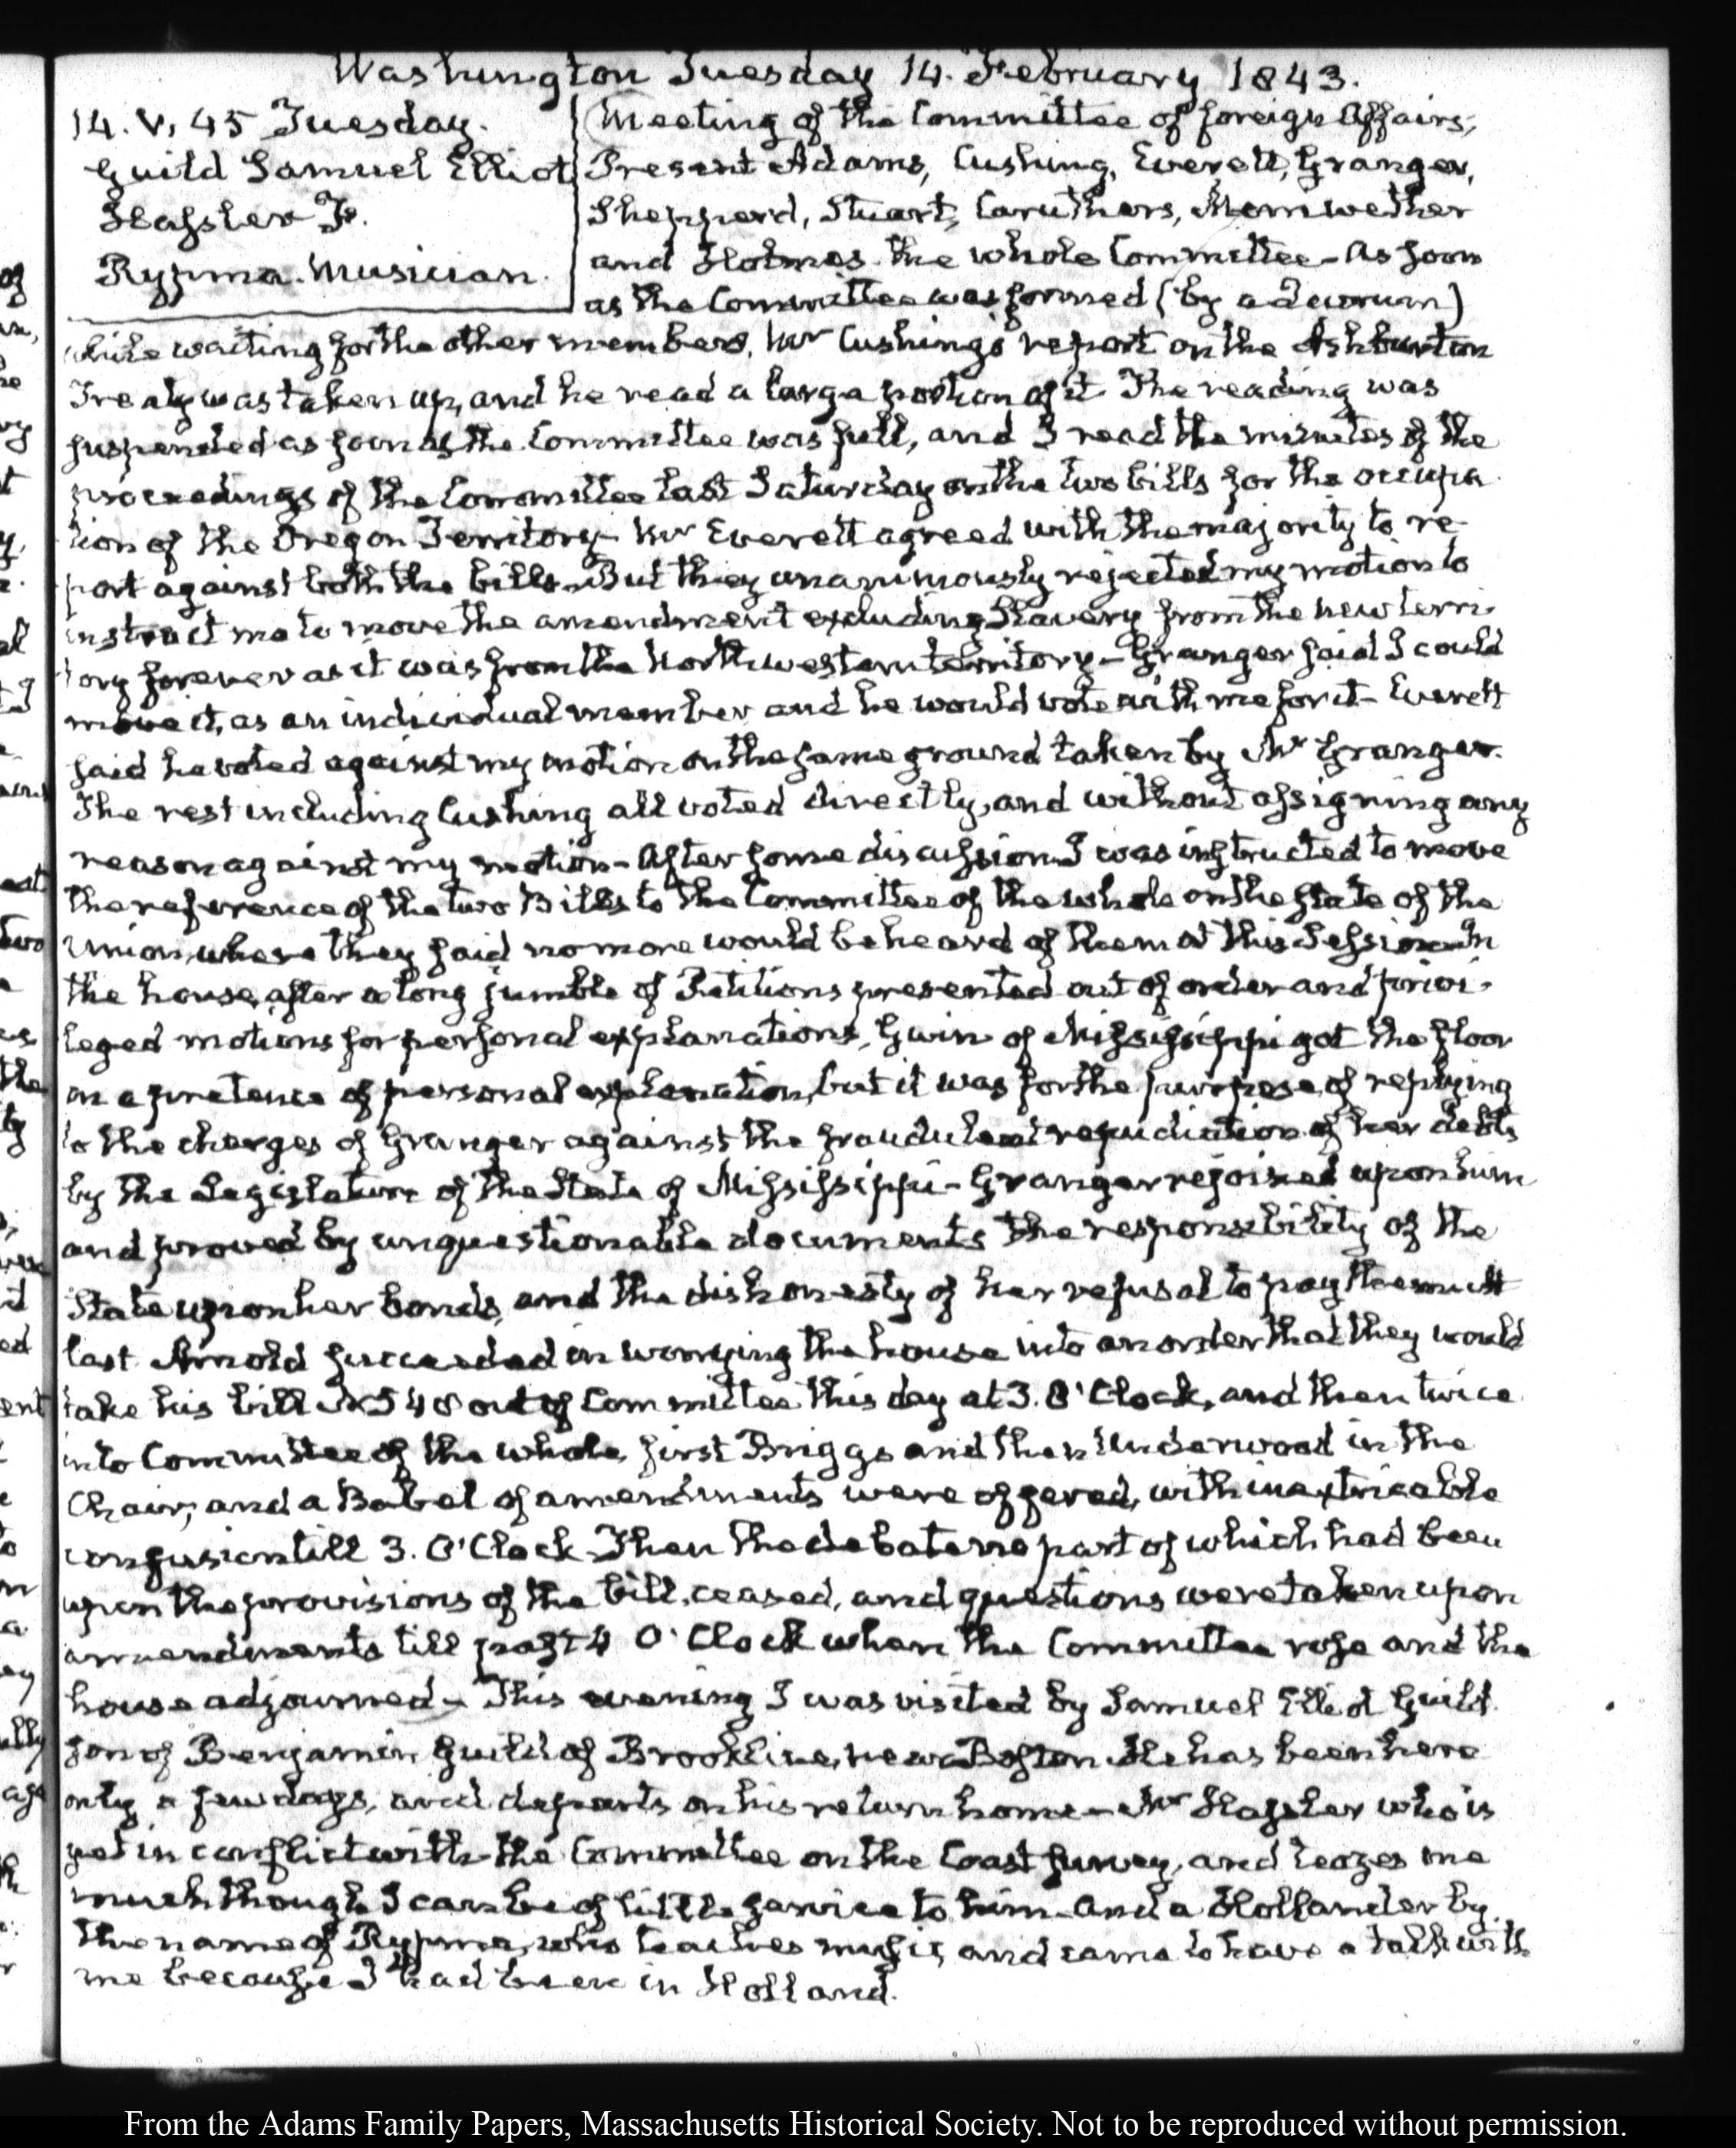 Washington Tuesday 14. February 1843.
14. V, 45 Tuesday.
Guild Samuel Elliot
Hassler F.
Rypma. Musician.
Meeting of the Committee of foreign Affairs;
Present Adams, Cushing, Everett, Granger,
Shepperd, Stuart, Caruthers, Meriwether
and Holmes. the whole Committee – As soon
as the Committee was formed (by a Quorum)
while waiting for the other members, Mr Cushing's report on the Ashburton
Treaty was taken up, and he read a large portion of it. The reading was
suspended as soon as the Committee was full, and I read the minutes of the
proceedings of the Committee last Saturday on the two bills for the occupa
tion of the Oregon Territory – Mr Everett agreed with the majority to re-
port against both the bills. But they unanimously rejected my motion to
instruct me to move the amendment excluding Slavery from the new terri-
tory forever as it was from the Northwestern territory – Granger said I could
move it, as an individual member and he would vote with me for it – Everett
said he voted against my motion on the same ground taken by Mr Granger.
The rest including Cushing all voted directly, and without assigning any
reason against my motion – After some discussion I was instructed to move
the reference of the two Bills to the Committee of the whole on the state of the
Union, where they said no more would be heard of them at this Session In
the house, after a long jumble of Petitions presented out of order and privi-
leged motions for personal explanations, Gwin of Mississippi got the floor
on a pretence of personal explanation, but it was for the purpose of replying
to the charges of Granger against the fraudulent repudiation of her debts
by the Legislature of the State of Mississippi – Granger rejoined upon him
and proved by unquestionable documents the responsibility of the
State upon her bonds, and the dishonesty of her refusal to pay them At
last Arnold succeeded in worrying the house into an order that they would
take his bill N 548 out of Committee this day at 3. O'Clock, and then twice
into Committee of the whole, first Briggs and then Underwood in the
Chair; and a Babel of amendments were offered, with inextricable
confusion till 3. O'Clock – Then the debate no part of which had been
upon the provisions of the bill, ceased, and questions were taken upon
amendments till past 4 O'Clock when the Committee rose and the
house adjourned – This evening I was visited by Samuel Elliot Guild
son of Benjamin Guild of Brookline, near Boston. He has been here
only a few days, and departs on his return home – Mr Hassler who is
yet in conflict with the Committee on the Coast survey, and teazes me
much though I can be of little service to him – And a Hollander by
the name of Rypma, who teaches music, and came to have a talk with
me because I had been in Holland.
From the Adams Family Papers, Massachusetts Historical Society. Not to be reproduced without permission.